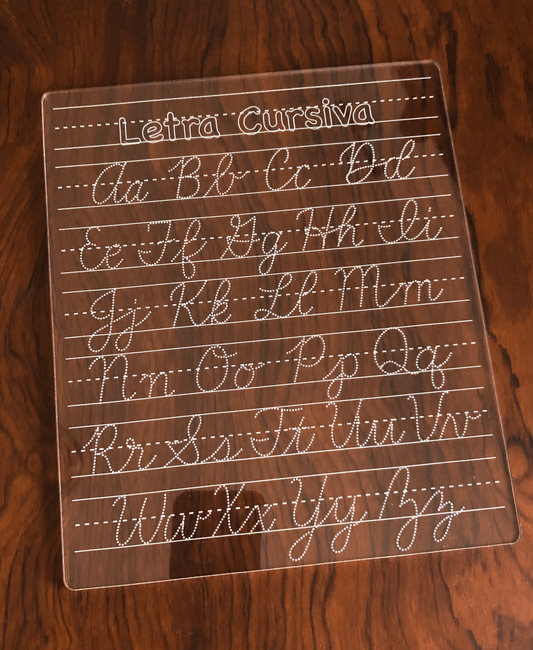 Letra Cursiva
Aa Bb Cc Dd
Ee Ff Gg Hh Ii
Jj Kk Ll Mm
Nn Oo Pp Qq
Rr Ss Tt Uu Vv
Ww Xx Yy Zz